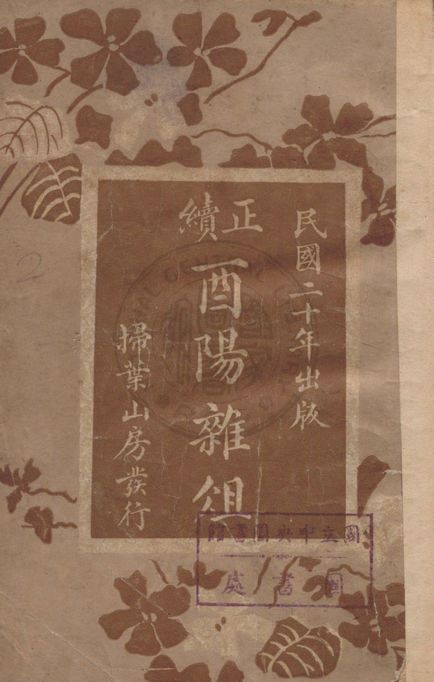 民國二十年出版
正續
酉陽雜俎
掃葉山房發行
國立中央圖書館
圖書處